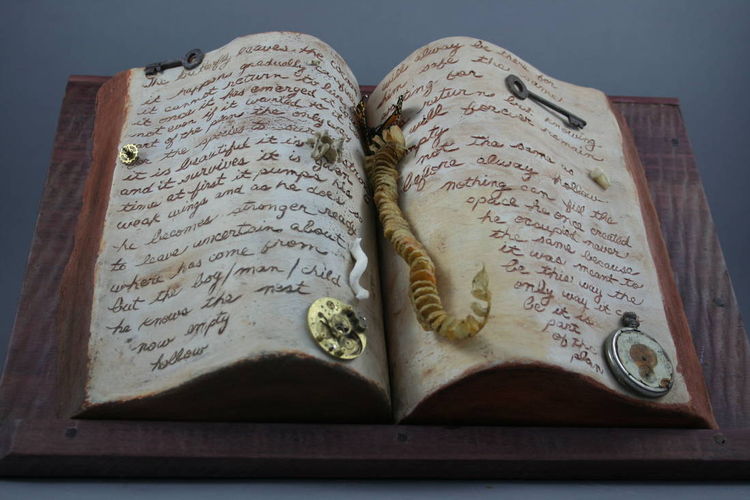 The butterfly leaves the
it happens gradually
it cannot return to
it once it has emerged it
not even if it wanted to
part of the plan the only
the species to
it is beautiful it is strong
and it survives it is
time at first it pumps his
weak wings and as he does so
he becomes stronger ready
to leave uncertain about
where has come from
but the boy/man/child
he knows the nest
now empty
hollow
will alway be there for
him safe the same
waiting for
return but knowing
will forever remain
empty
not the same as
before alway hollow
nothing can fill the
space he once created
he occupied never
the same because
it was meant to
be this way the
only way it
be it is
part
of the
plan